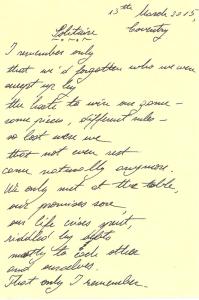 13th March 2015,
Coventry
Solitaire
I remember only
that we'd forgotten who we were
swept up by
the haste to win one game –
same pieces, different rules –
so lost were we
that not even rest
came naturally anymore.
We only met at the table,
our promises sore,
our life crises quiet,
riddled by debts
mostly to each other
and ourselves.
That only I remember.